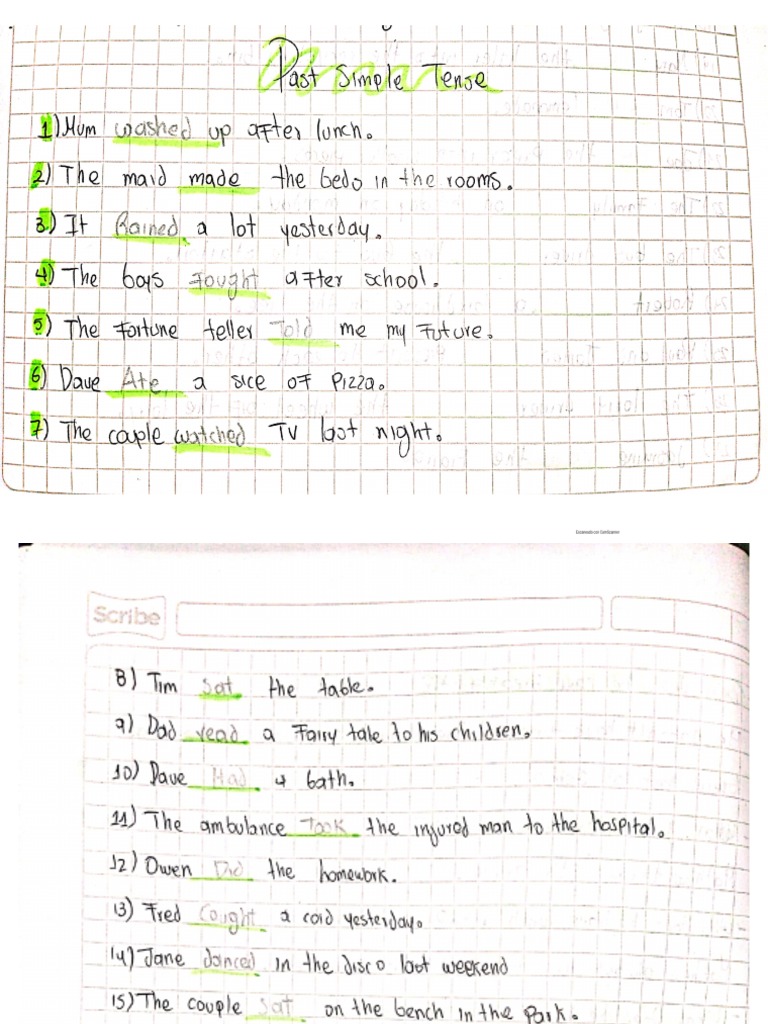 Past Simple Tense
1) Mum washed up after lunch.
2) The maid made the beds in the rooms.
3) It Rained a lot yesterday.
4) The boys Fought after school.
5) The Fortune teller Told me my Future.
6) Dave Ate a sice of Pizza.
7) The couple watched TV last night.
Escaneado con CamScanner
Scribe
8) Tim sat the table.
9) Dad read a Fairy tale to his children.
10) Dave Had a bath.
11) The ambulance Took the injured man to the hospital.
12) Owen Did the homework.
13) Fred Cought a cold yesterday.
14) Jane danced in the disco last weekend
15) The couple sat on the bench in the Park.